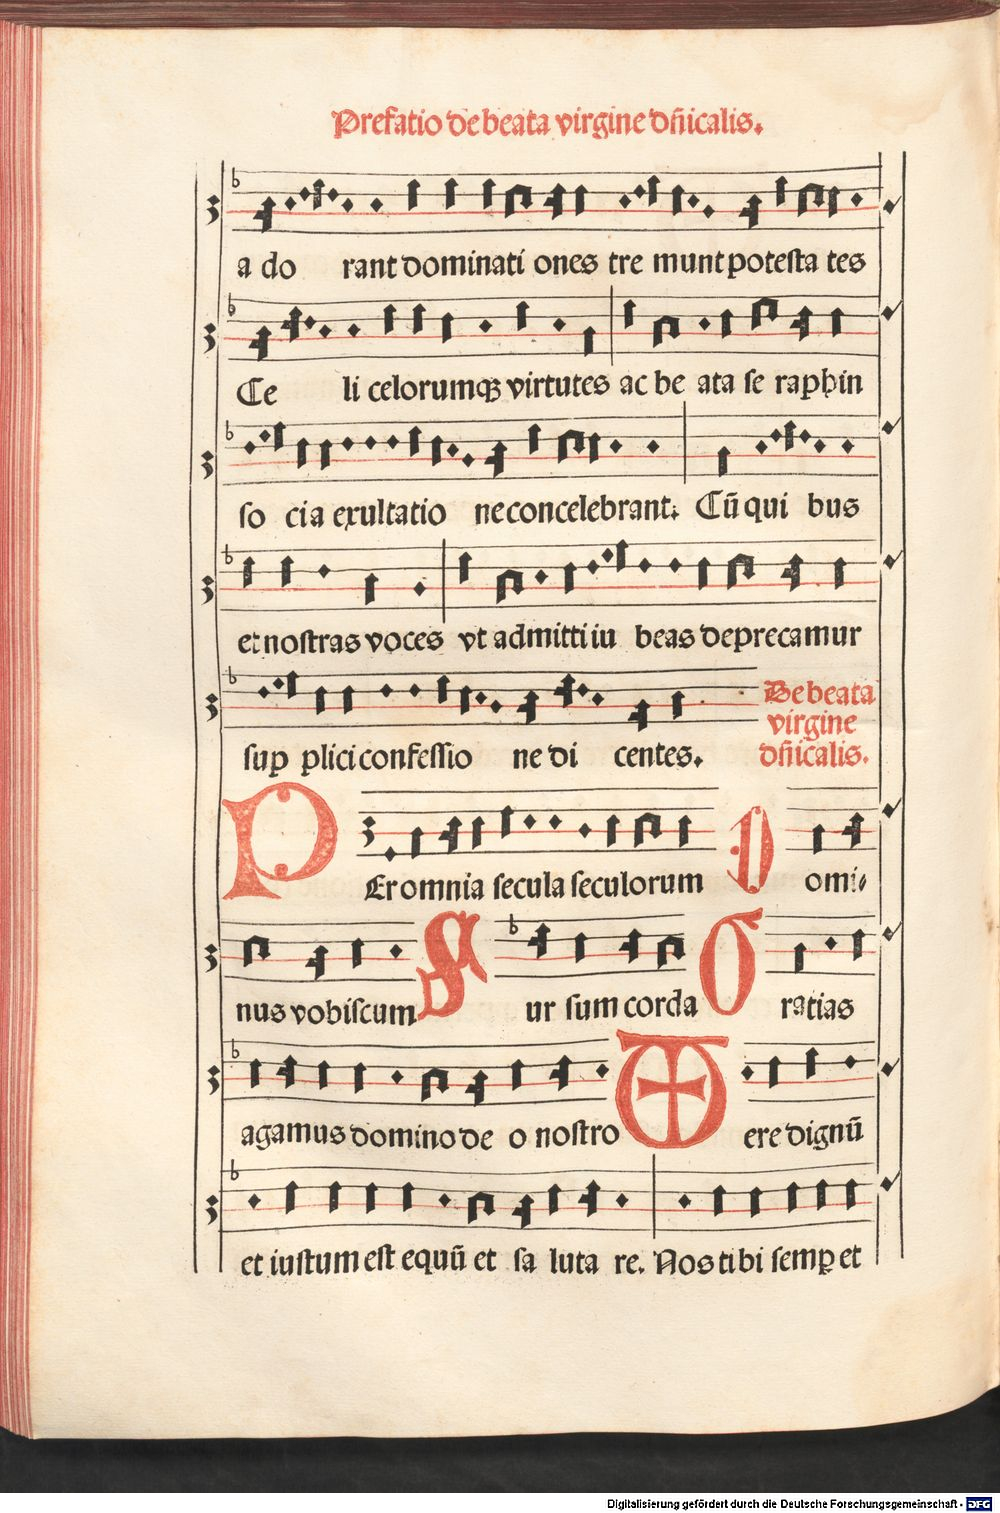 Prefatio de beata virgine dñicalis.
a do rant dominati ones tre munt potesta tes
Ce li celorumqꝫ virtutes ac be ata se raphin
so ci a exultatio ne concelebrant. Cũ qui bus
et nostras voces vt admitti iu beas deprecamur
sup plici confessio ne di centes.
De beata
virgine
dñicalis.
PEr omnia secula seculorum Domi-
nus vobiscum Sur sum corda Gratias
agamus domino de o nostro Vere dignũ
et iustum est equũ et sa luta re. Nos tibi semꝑ et
Digitalisierung gefördert durch die Deutsche Forschungsgemeinschaft - DFG